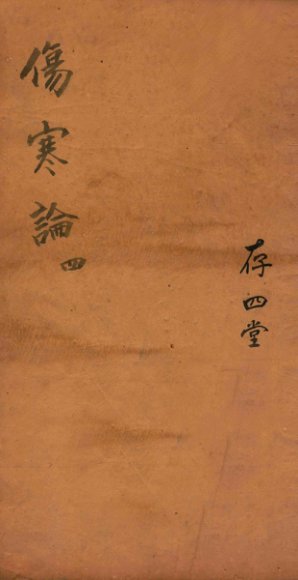 傷寒論四
存四堂